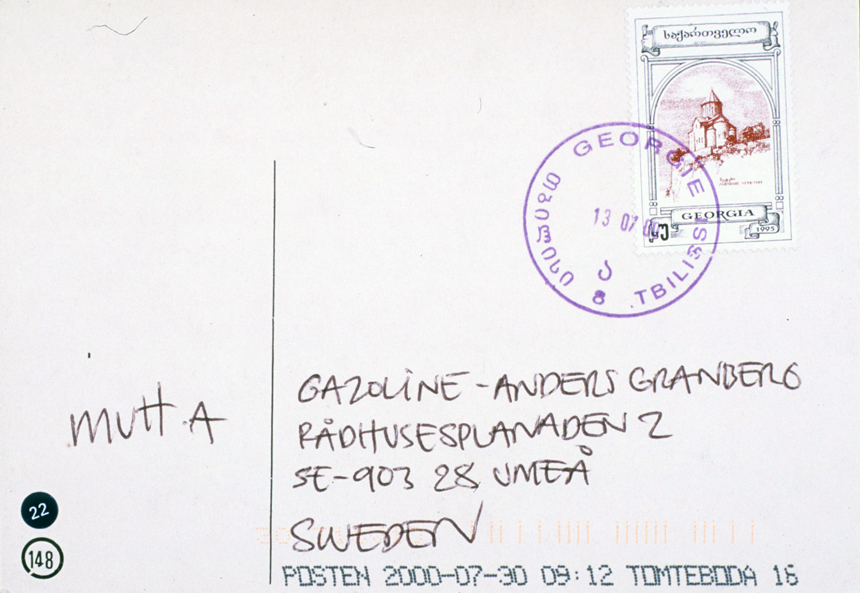 საქართველო
GEORGIA
1995
GEORGIE
თბილისი
13 07 00
ა
8 TBILISSI
MUTT A
GAZOLINE - ANDERS GRANBERG
RÅDHUSESPLANADEN 2
SE-903 28 UMEÅ
SWEDEN
22
148
POSTEN 2000-07-30 09:12 TOMTEBODA 16